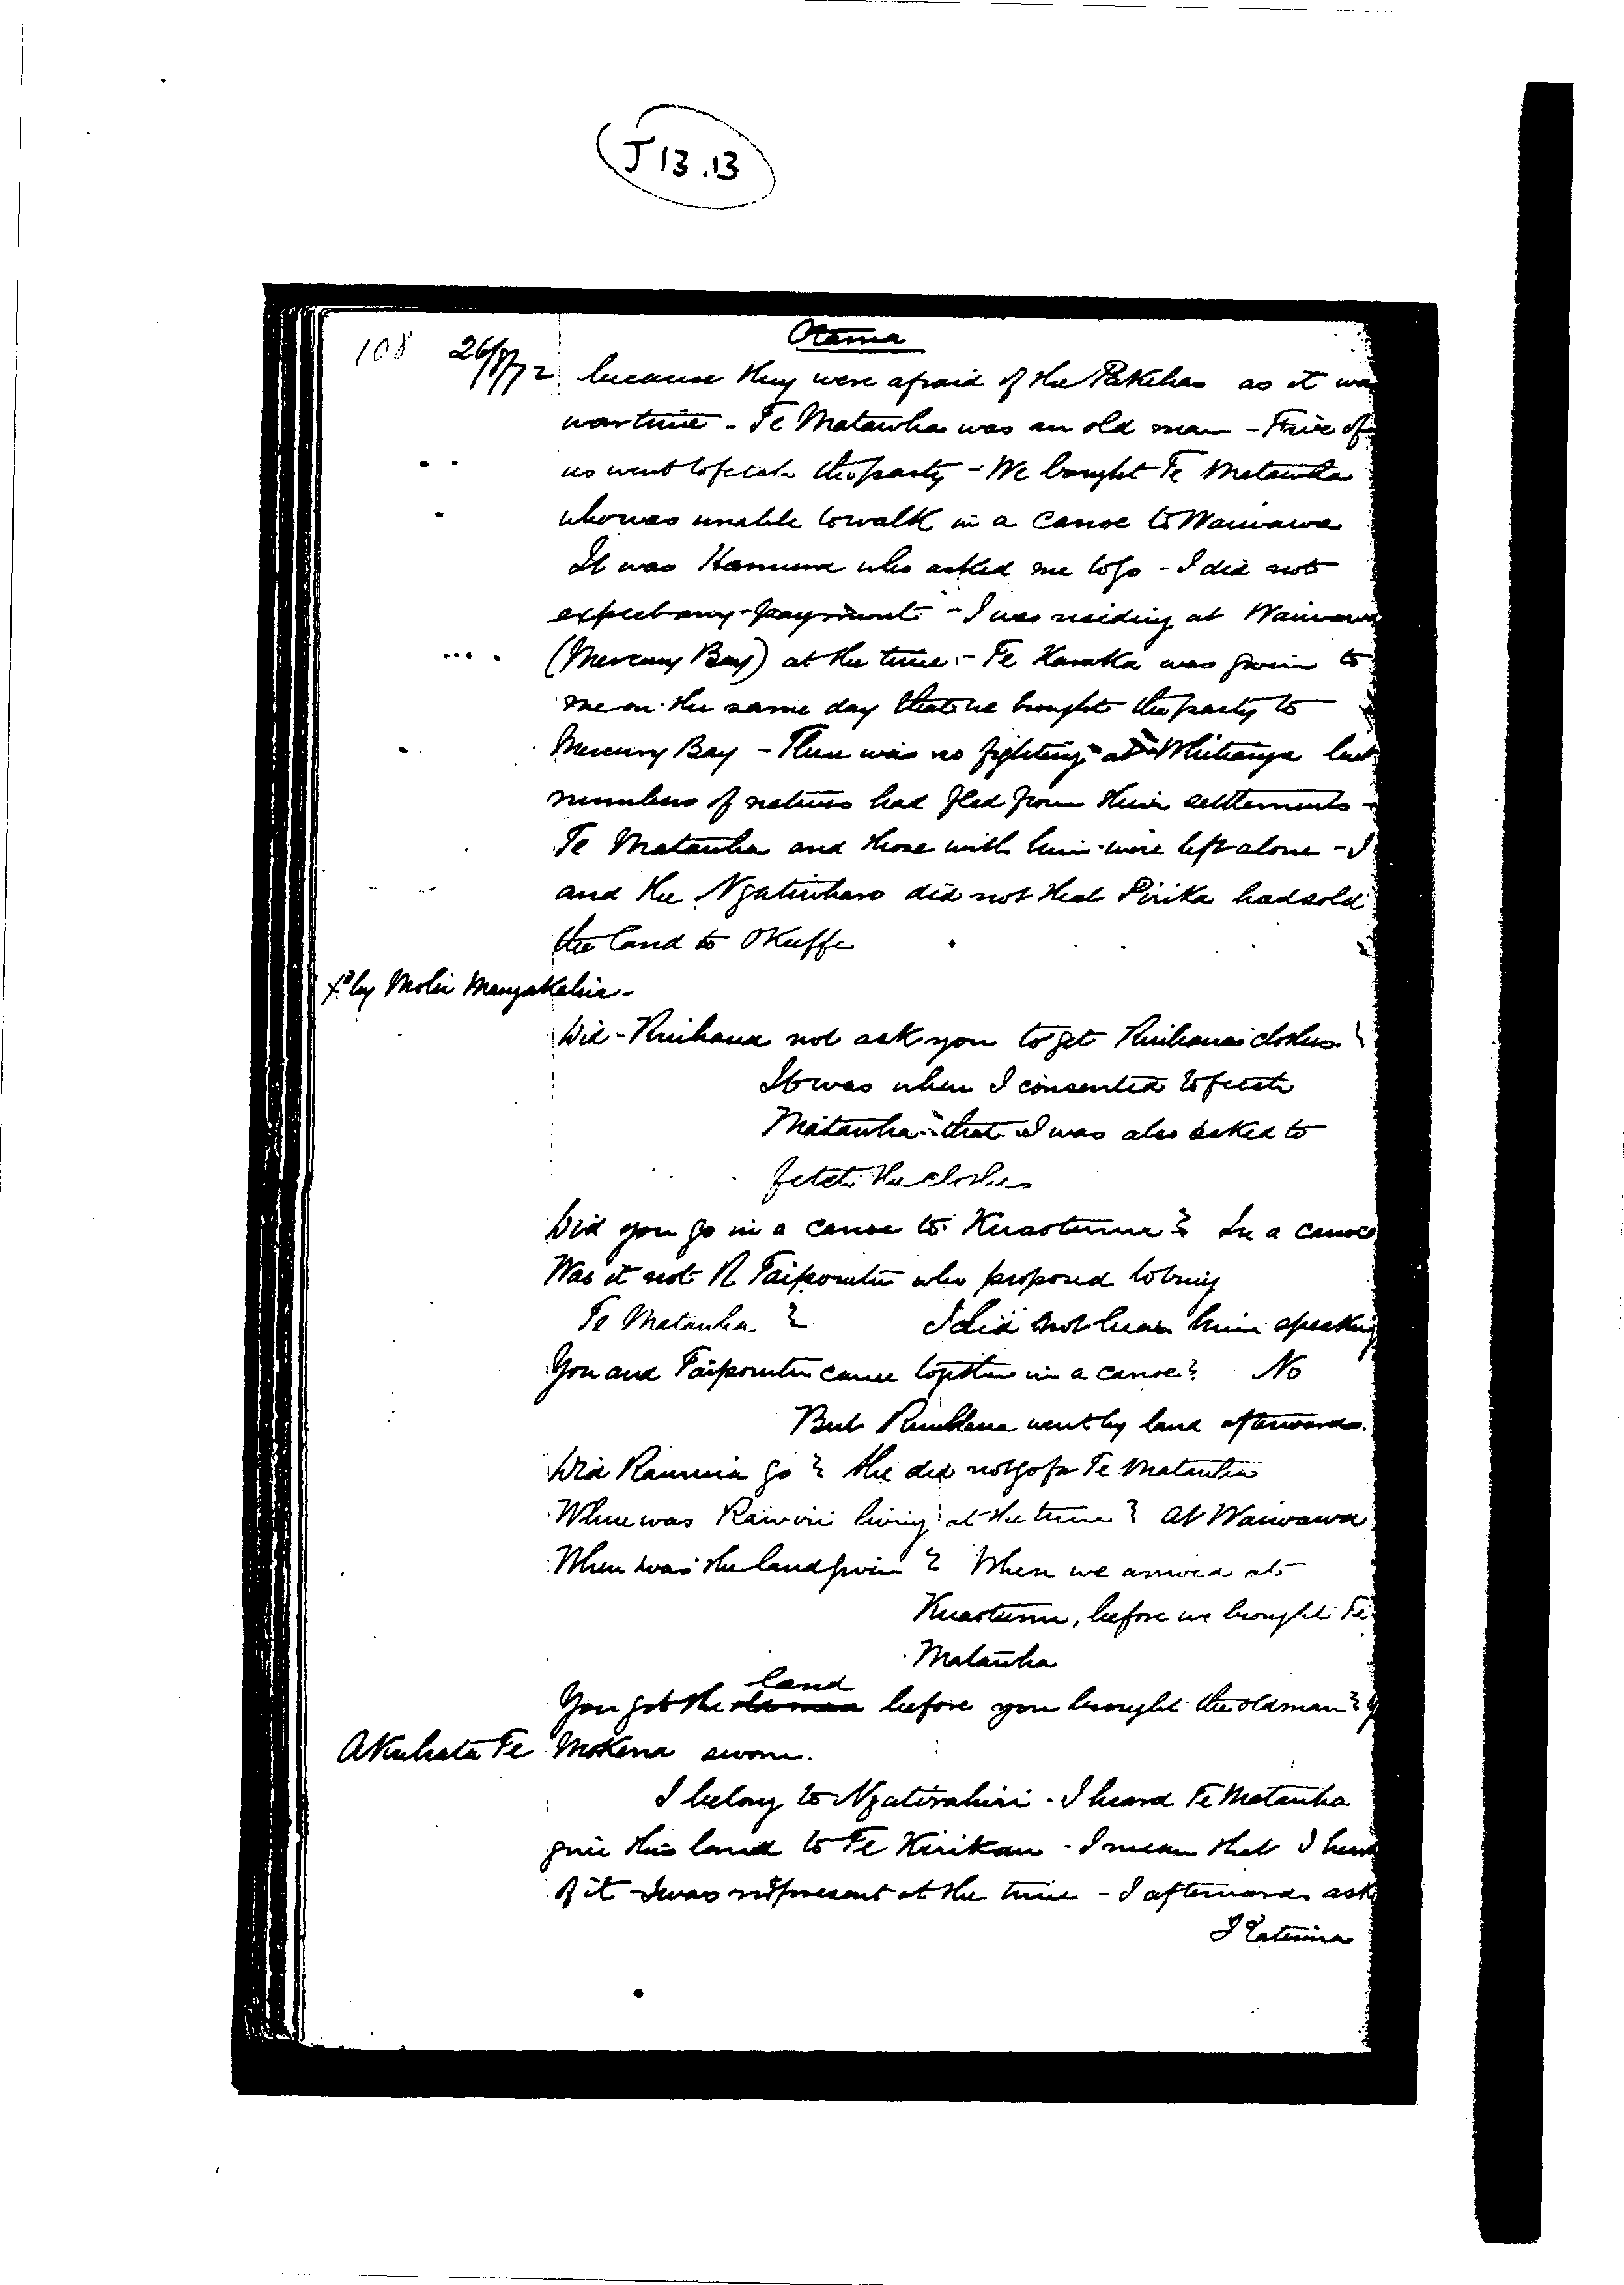 J 13.13
Otama
108 26/8/72 because they were afraid of the Pakehas as it was
war time - Te Matauha was an old man - Five of
us went to fetch the party - We brought Te Matauha
who was unable to walk in a canoe to Waiwawa
It was who asked me to go - I did not
expect any payment - I was residing at Waiwawa
(Mercury Bay) at the time - Te was given to
me on the same day that we brought the party to
Mercury Bay - There was no fighting at Whitianga but
numbers of natives had fled from their settlements -
Te Matauha and those with him were left alone - I
and the did not that Pirika had sold
the land to OKeeffe
Xd by Mohi Mangakahia -
Did not ask you to get clothes ?
It was when I consented to fetch
Matauha that I was also asked to
fetch the clothes
Did you go in a canoe to Kuaotunu ? In a canoe
Was it not R Taiporutu who proposed to bring
Te Matauha ? I did not hear him speaking
You and Taiporutu came together in a canoe ? No
But went by land afterwards.
Did go ? He did not go for Te Matauha
Where was Rawiri living at the time ? At Waiwawa
When was the land given ? When we arrived at
Kuaotunu, before we brought Te
Matauha
land
You got the old man before you brought the old man ?
Akuhata Te Mokena sworn.
I belong to Ngatirahiri - I heard Te Matauha
give this land to Te Kirikau - I mean that I heard
of it - I was not present at the time - I afterwards ask